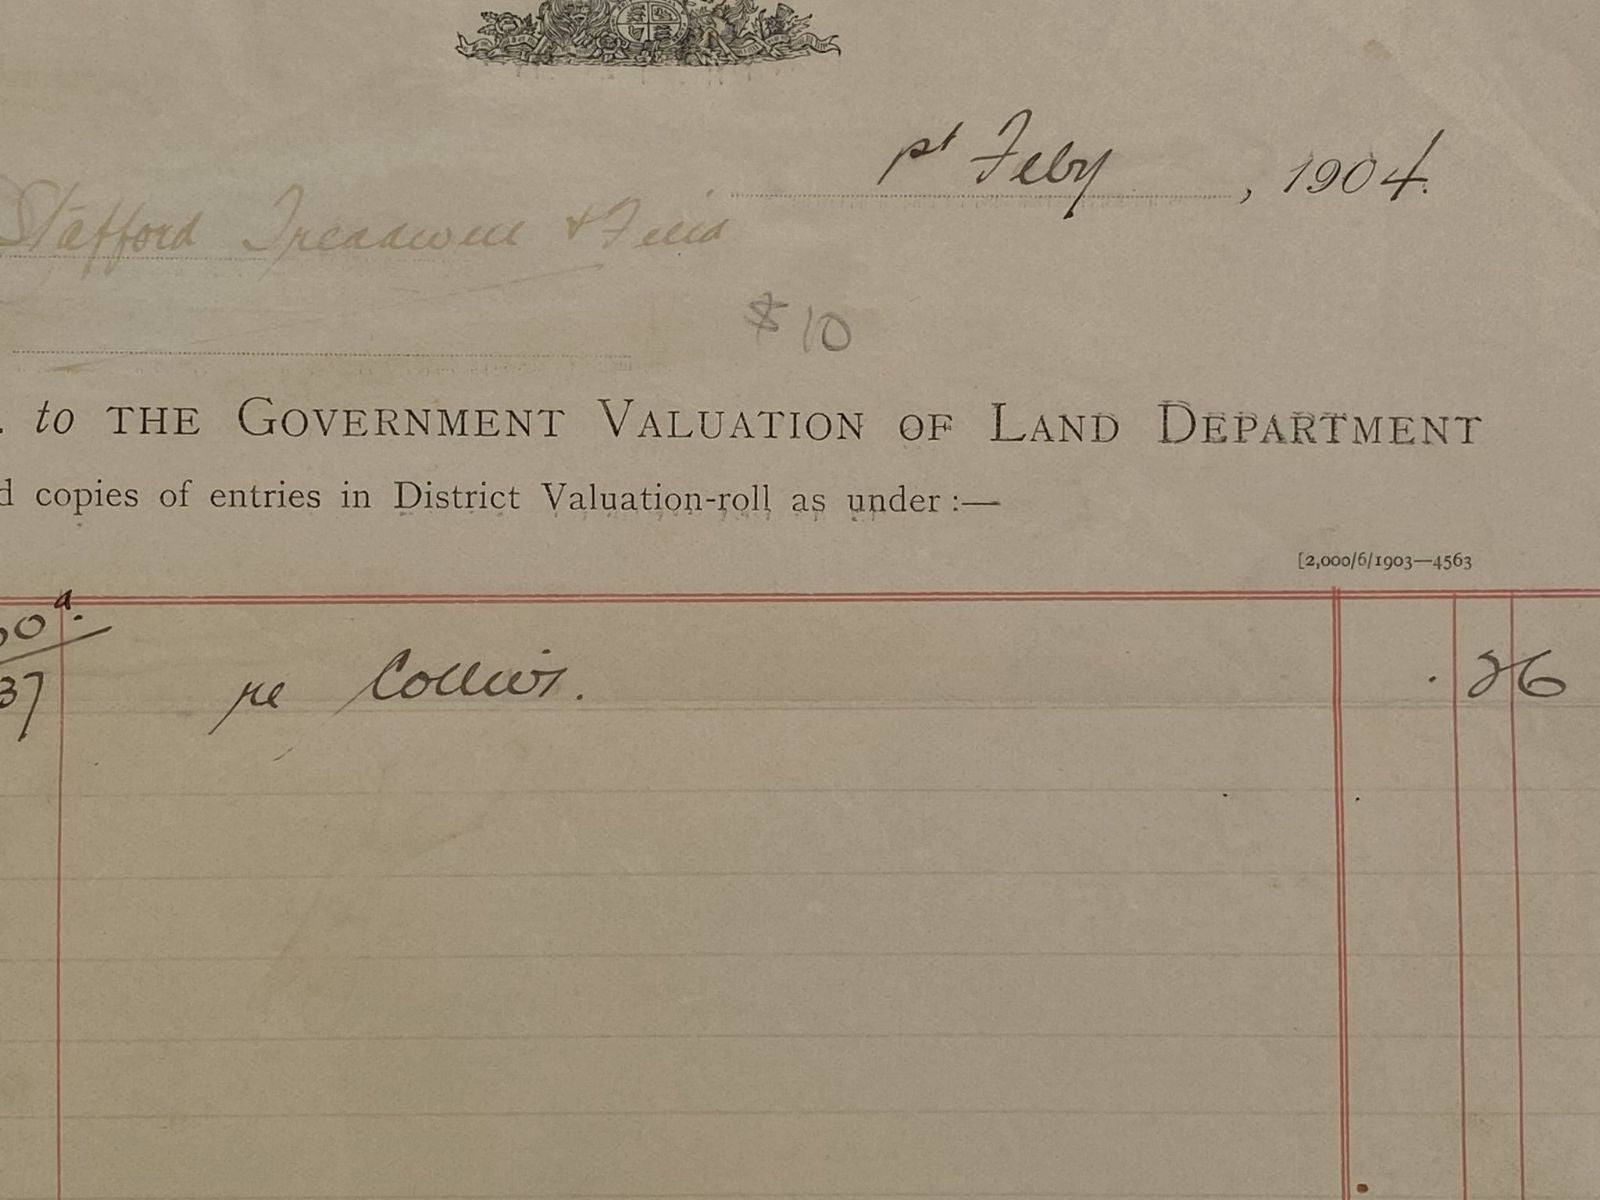 1st Feby, 1904.
Stafford Treadwell & Field
$10
. to THE GOVERNMENT VALUATION OF LAND DEPARTMENT
d copies of entries in District Valuation-roll as under :—
[2,000/6/1903—4563
a.
37 re Collins. . 26